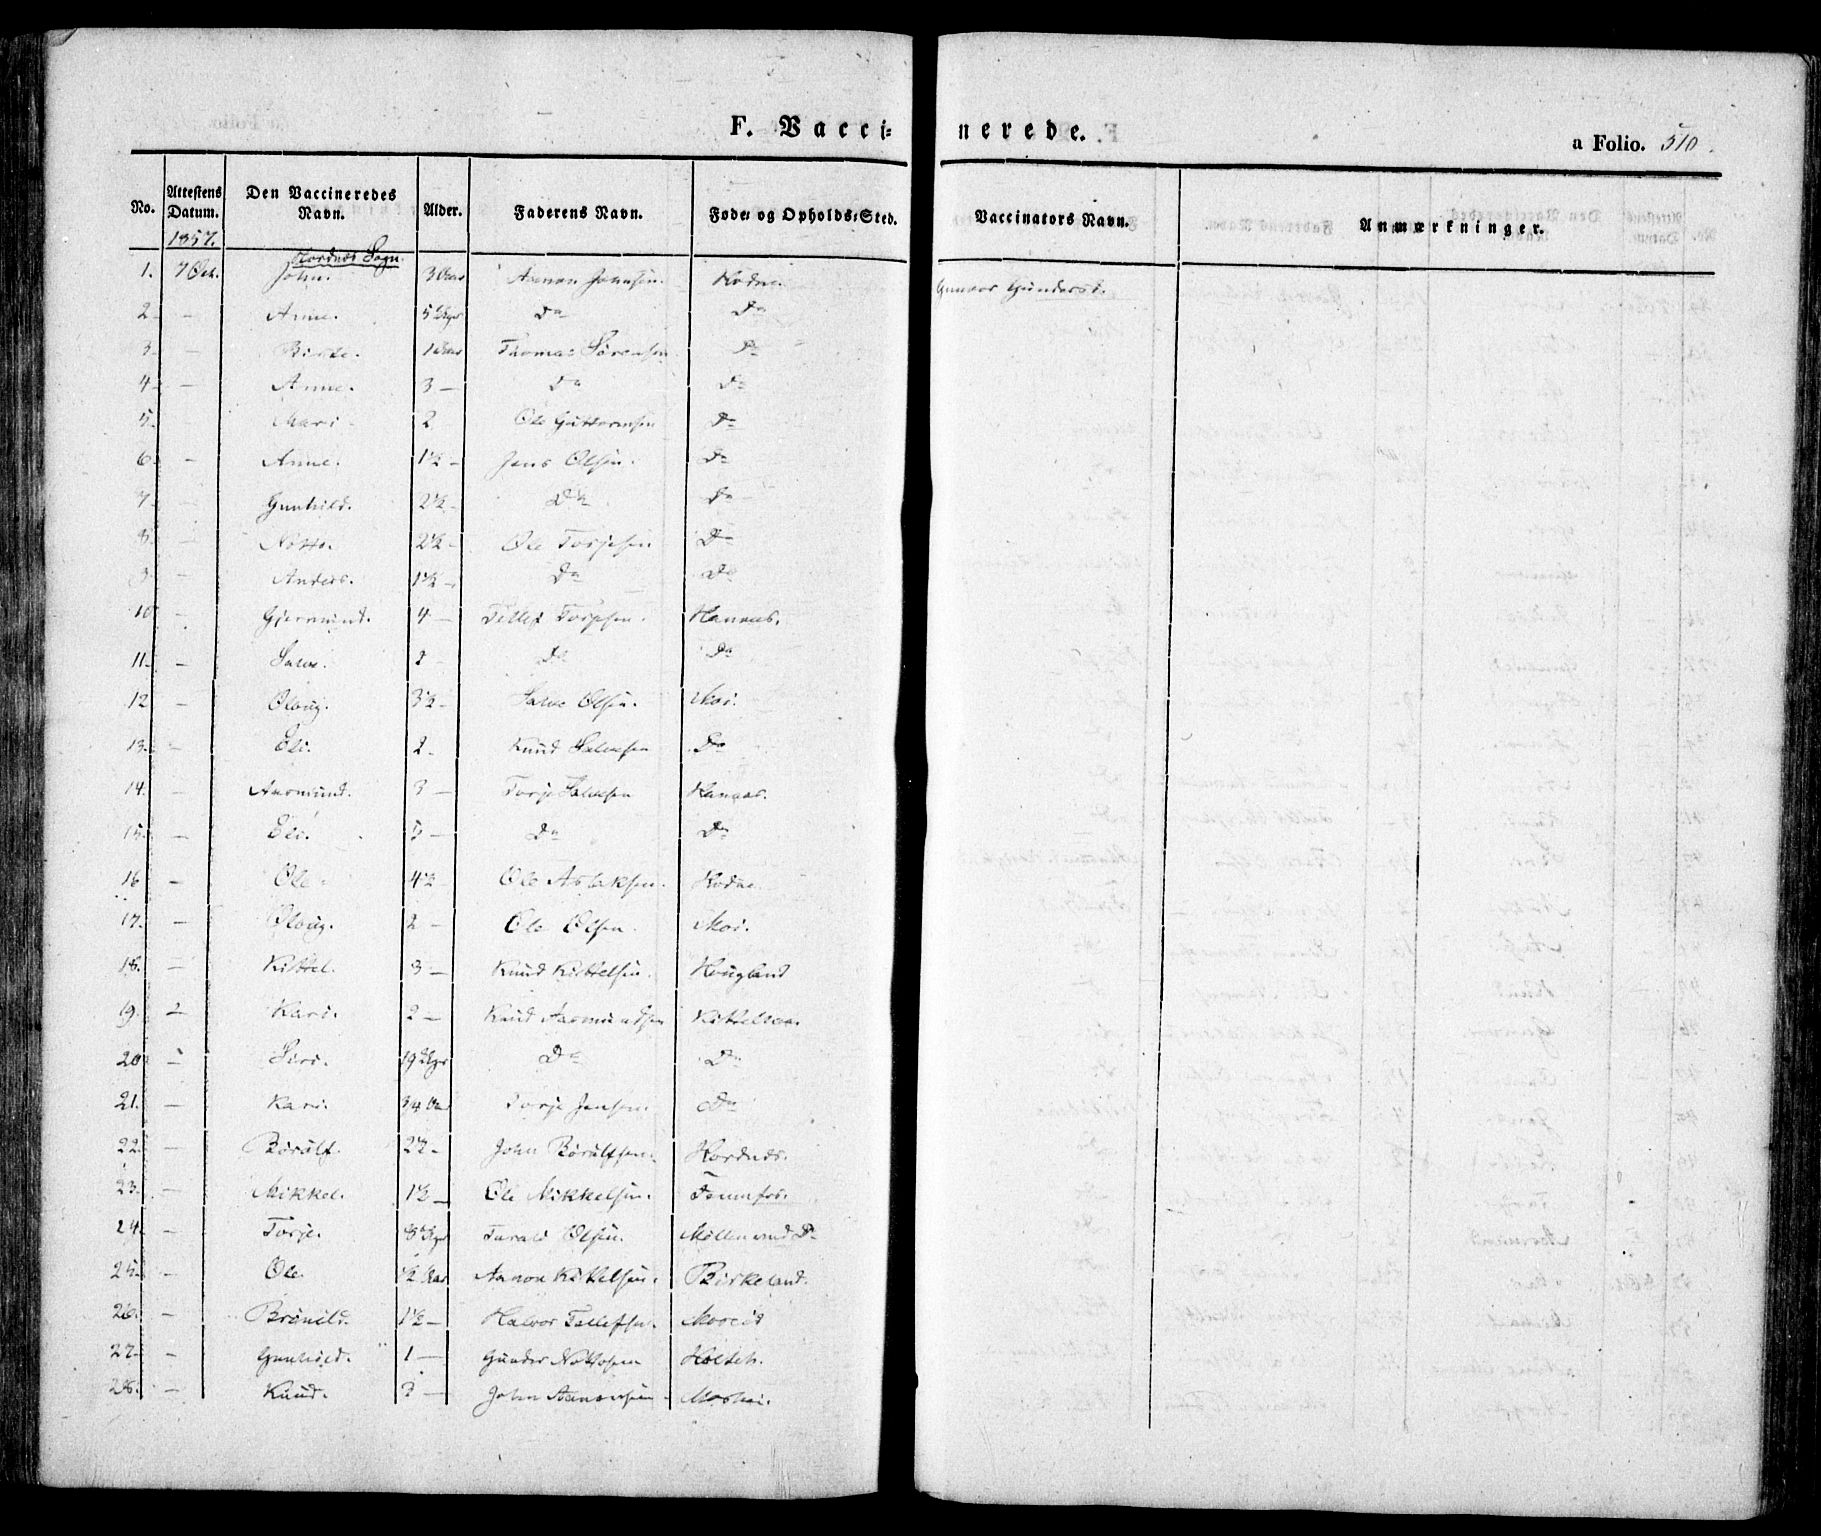 F. Vacci- nerede.
a Folio. 510.
No. Attestens Datum. Den Vaccineredes Navn. Alder. Faderens Navn. Føde- og Opholds-Sted. Vaccinators Navn. Anmærkninger.
1857.
Hordnes Sogn.
1. 7 Oct. John. 3 Aar Aanon Jonnsen. Hodne. Gunvor Gundersd.
2 - Anne. 5 Uger Do Do
3. - Birte. 1 Aar Thomas Sørensen Do
4 - Anne. 3 - Do Do
5. - Mari. 2 Ole Guttormsen Do
6 - Anne. 1½ - Jens Olsen. Do
7 - Gunhild. 2½ - Do Do
8. - Notto. 2½ - Ole Torjesen Do
9. - Anders. 1½ - Do Do
10 - Gjermund. 4 - Tellef Torjesen. Hannaas.
11. - Salve. 2 - Do Do
12 - Oloug. 3½ - Salve Olsen. Moi.
13. - Eli. 2 - Knud Salvesen Do
14. - Aasmund. 3 - Torje Salvesen Hanaas.
15. - Eli. 5 - Do Do
16 - Ole 4½ - Ole Aslaksen. Hodne.
17. - Oloug. 2 - Ole Olsen. Moi.
18. - Kittel. 3 - Knud Kittelsen. Hougland
19. - Kari. 2 - Knud Aasmundsen
20 - Siri. 19 Uger Do Do
21. - Kari. 3/4 Aar Torje Jensen. Do
22. - Börülf. 2½ - John Börülfsen. Hordnes.
23. - Mikkel. 1½ - Ole Mikkelsen. Fennefos.
24. - Torje. 8 Uger Tarald Olsen.
25. - Ole. ½ Aar Aanon Kittelsen. Birkeland.
26. - Brönild. 1½ - Halvor Tellefsen.
27. - Gunhild. 1 - Gunder Nottosen
28. - Knud. 3 - John Aanonsen